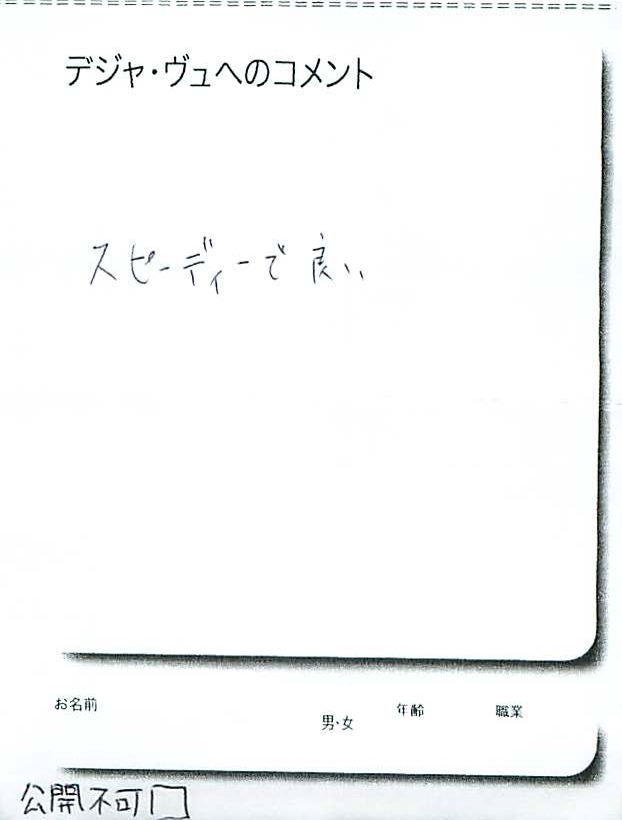 デジャ・ヴュへのコメント
スピーディーで良い
お名前
男・女 年齢 職業
公開不可□